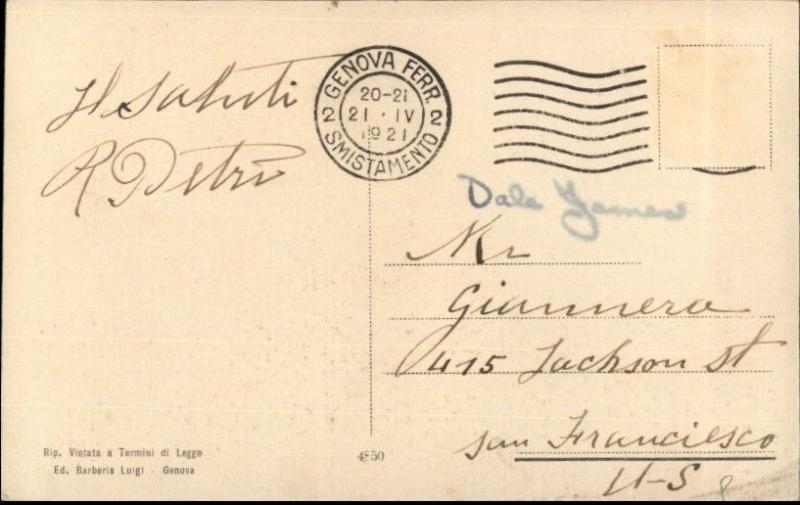 Il Saluti
R Detri
GENOVA FERR.
20-21
2 21 · IV 2
1921
SMISTAMENTO
Dale James
Mr
Giannera
415 Jackson St
San Franciesco
U-S
Rip. Vietata a Termini di Legge
Ed. Barberis Luigi - Genova
4850